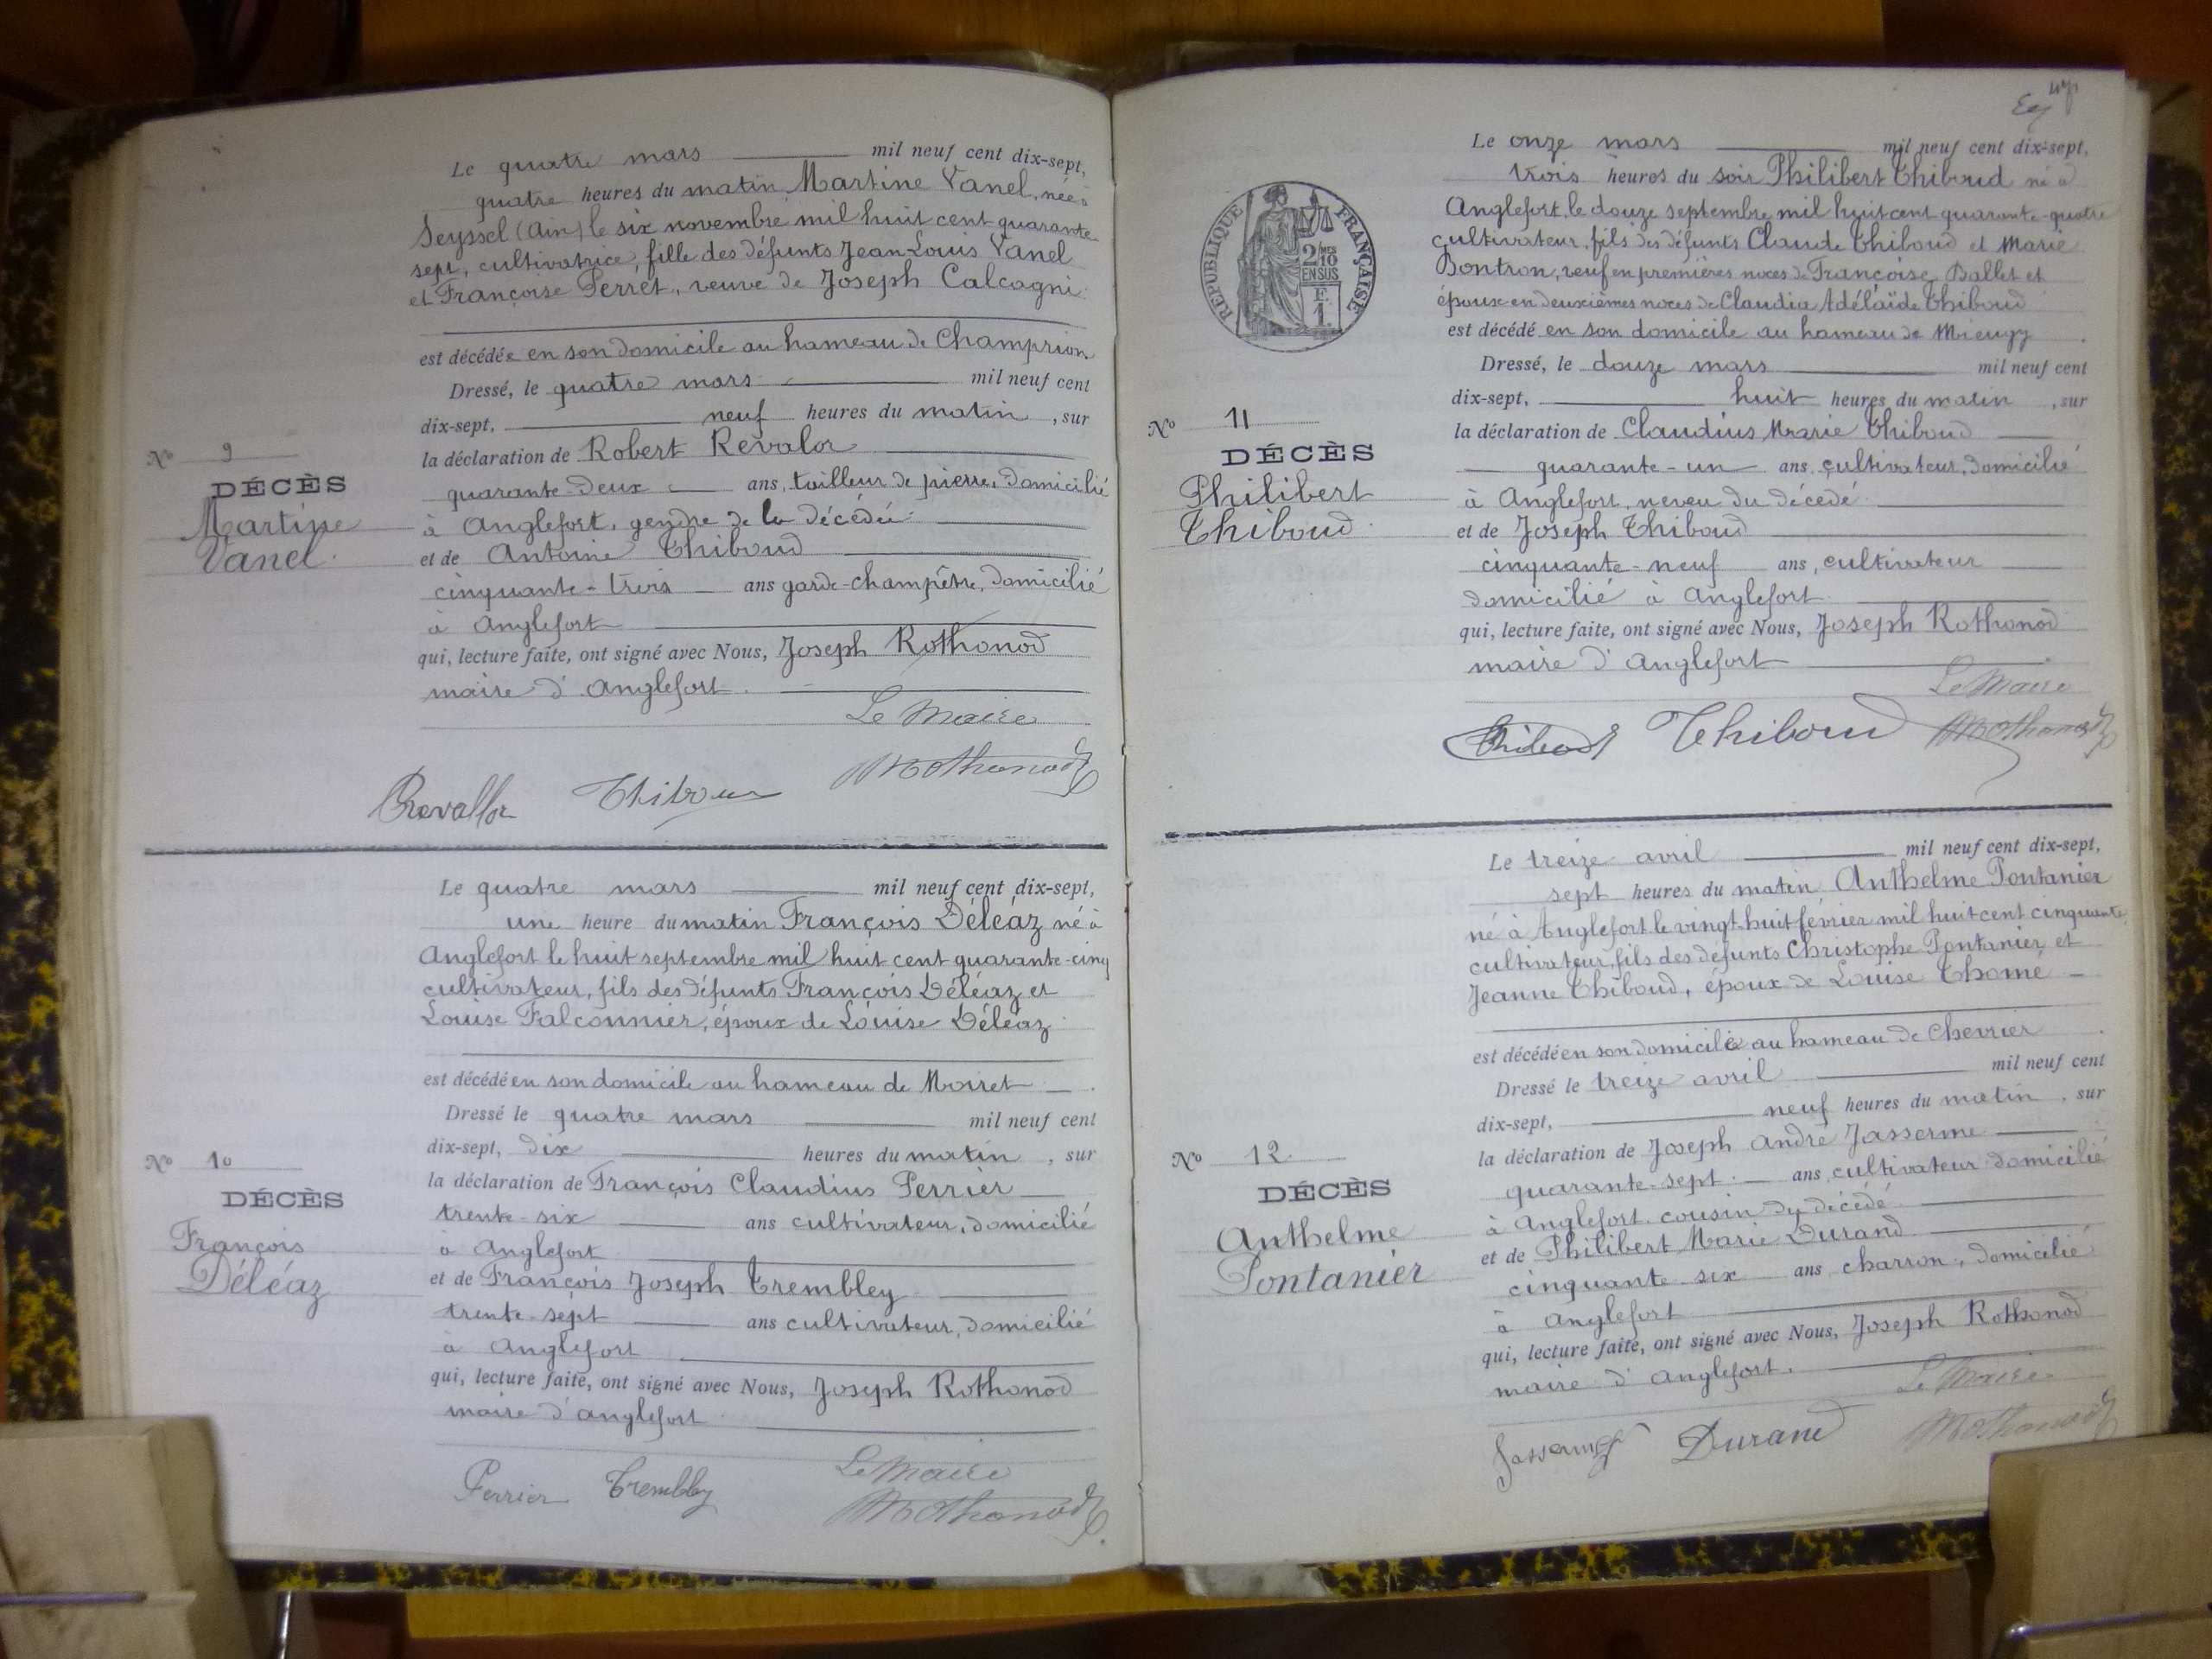 Le quatre mars mil neuf cent dix-sept,
quatre heures du matin Martine Vanel, née à
Seyssel (Ain) le six novembre mil huit cent quarante-
sept, cultivatrice, fille des défunts Jean-Louis Vanel
et Françoise Perret, veuve de Joseph Calcagni
est décédée en son domicile au hameau de Champrion
Dressé, le quatre mars mil neuf cent
dix-sept, neuf heures du matin, sur
la déclaration de Robert Revalor
quarante-deux ans, tailleur de pierre, domicilié
à Anglefort, gendre de la décédée
et de Antoine Thiboud
cinquante-trois ans garde-champêtre, domicilié
à Anglefort
qui, lecture faite, ont signé avec Nous, Joseph Rothonod
maire d'Anglefort.
Le Maire
Revallor Thiboud Rothonod
No 9
DÉCÈS
Martine
Vanel.
Le quatre mars mil neuf cent dix-sept,
une heure du matin François Déléaz né à
Anglefort le huit septembre mil huit cent quarante-cinq
cultivateur, fils des défunts François Déléaz et
Louise Falconnier, époux de Louise Déléaz
est décédé en son domicile au hameau de Moiret
Dressé le quatre mars mil neuf cent
dix-sept, dix heures du matin, sur
la déclaration de François Claudius Perrier
trente-six ans cultivateur, domicilié
à Anglefort
et de François Joseph Trembley
trente-sept ans cultivateur, domicilié
à Anglefort
qui, lecture faite, ont signé avec Nous, Joseph Rothonod
maire d'Anglefort
Le Maire
Perrier Trembley Rothonod
No 10
DÉCÈS
François
Déléaz
RÉPUBLIQUE FRANÇAISE
2/10
EN SUS
F.
1
Le onze mars mil neuf cent dix-sept,
trois heures du soir Philibert Thiboud né à
Anglefort, le douze septembre mil huit cent quarante-quatre
cultivateur, fils des défunts Claude Thiboud et Marie
Bontron, veuf en premières noces de Françoise Ballet et
époux en deuxièmes noces de Claudia Adélaïde Thiboud
est décédé en son domicile au hameau de Mieugy
Dressé, le douze mars mil neuf cent
dix-sept, huit heures du matin, sur
la déclaration de Claudius Marie Thiboud
quarante-un ans, cultivateur, domicilié
à Anglefort, neveu du décédé
et de Joseph Thiboud
cinquante-neuf ans, cultivateur
domicilié à Anglefort
qui, lecture faite, ont signé avec Nous, Joseph Rothonod
maire d'Anglefort
Le Maire
Thiboud Thiboud Rothonod
No 11
DÉCÈS
Philibert
Thiboud.
Le treize avril mil neuf cent dix-sept,
sept heures du matin Anthelme Pontanier
né à Anglefort le vingt-huit février mil huit cent cinquante,
cultivateur, fils des défunts Christophe Pontanier et
Jeanne Thiboud, époux de Louise Thomé
est décédé en son domicile au hameau de Chevrier
Dressé le treize avril mil neuf cent
dix-sept, neuf heures du matin, sur
la déclaration de Joseph André Jasserme
quarante-sept ans, cultivateur domicilié
à Anglefort, cousin du décédé
et de Philibert Marie Durand
cinquante six ans charron, domicilié
à Anglefort
qui, lecture faite, ont signé avec Nous, Joseph Rothonod
maire d'Anglefort.
Le Maire
Jasserme Durand Rothonod
No 12.
DÉCÈS
Anthelme
Pontanier